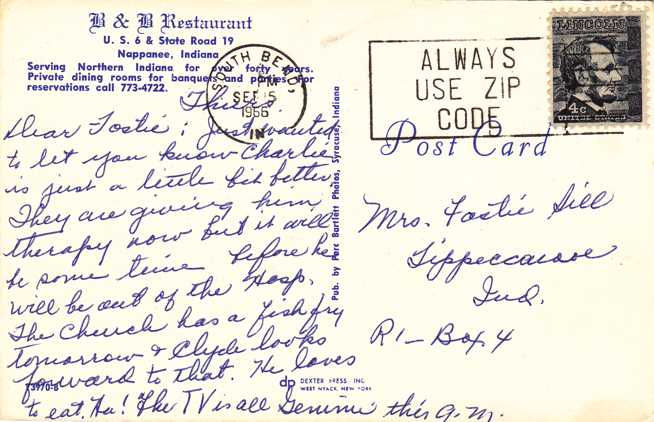 B & B Restaurant
U. S. 6 & State Road 19
Nappanee, Indiana
Serving Northern Indiana for over forty years.
Private dining rooms for banquets and parties. For
reservations call 773-4722.
SOUTH BEND,
PM
SEP 15
1966
IN
ALWAYS
USE ZIP
CODE
LINCOLN
4c
UNITED STATES
Post Card
Thurs.
Dear Fostie; Just wanted
to let you know Charlie
is just a little bit better.
They are giving him
therapy now but it will
be some time before he
will be out of the Hosp.
The Church has a fish fry
tomorrow & Clyde looks
forward to that. He loves
to eat. Ha! The TV is all Gemini this A.M.
Mrs. Fostie Sill
Tippecanoe
Ind.
R1 - Box 4
Pub. by Parc Bartlett Photos, Syracuse, Indiana
73970-B
dp DEXTER PRESS, INC.
WEST NYACK, NEW YORK